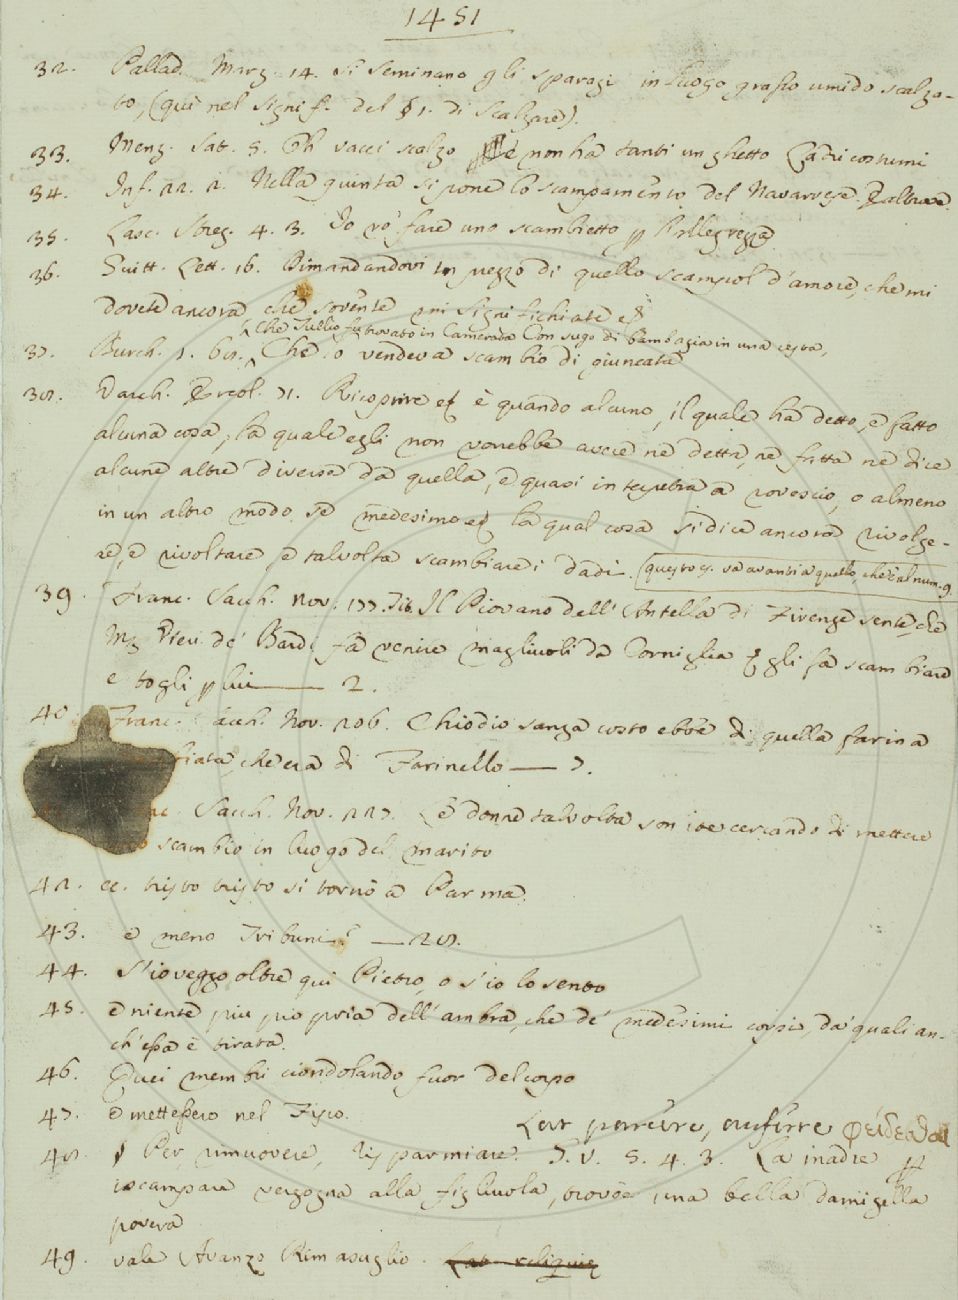 1451
32. Pallad. Marz. 14. si seminano gli sparagi in luogo grasso umido scalza-
to, (qui nel signif. del § 1. di Scalzare).
33. Menz. Sat. 5. Oh vacci scalzo e non ha tanti un ghetto Ladri costumi
34. Inf. 22. 2. Nella quinta si pone lo scampamento del Navarrese
35. Lasc. Streg. 4. 3. Io vo' fare uno scambietto p allegrezza
36. Guitt. Lett. 16. Rimandandovi in vezzo di quello scampol d'amore, che mi
dovete ancora che sovente mi significhiate
Che Tullio fu trovato in Camerata Con sugo di bambagia in una cesta,
37. Burch. 1. 68. Che vendeva scambio di giuncata
38. Varch. Ercol. 71. Ricoprire è quando alcuno, il quale ha detto, e fatto
alcuna cosa, la quale egli non vorrebbe avere nè detta, nè fatta nè dice
alcune altre diversa da quella, e quasi interpetra a rovescio, o almeno
in un altro modo se medesimo la qual cosa si dice ancora rivolge-
re, e rivoltare e talvolta scambiare i dadi. questo va avanti a quello, che è al num. 9.
39. Franc. Sacch. Nov. 177. Tit. Il Piovano dell' Antella di Firenze sente, che
Mz Vieri de' Bardi fa venire magliuoli da Corniglia gli fa scambiare
e togli p lui — 2.
40. Franc. Sacch. Nov. 206. Chiodio sanza costo ebbe di quella farina
che era di Farinello — 7.
Sacch. Nov. 227. Le donne talvolta son ite cercando di mettere
scambio in luogo del marito
42. ec. tristo tristo si tornò a Parma.
43. e meno Tribuni — 28.
44. S'io veggo oltre qui Pietro, o s'io lo sento
45. e niente più propria dell' ambra, che de' medesimi corpi, da' quali an-
ch' essa è tirata.
46. Quei membri ciondolando fuor del corpo
47. e mettessero nel Fisco.
Lat. parcere, auferre φείδεσθαι
48. § Per rimuovere, risparmiare. T. V. 5. 4. 3. La madre p
iscampare vergogna alla figliuola, trovòe una bella damigella
povera
49. vale Avanzo Rimasuglio. Lat. reliquiæ